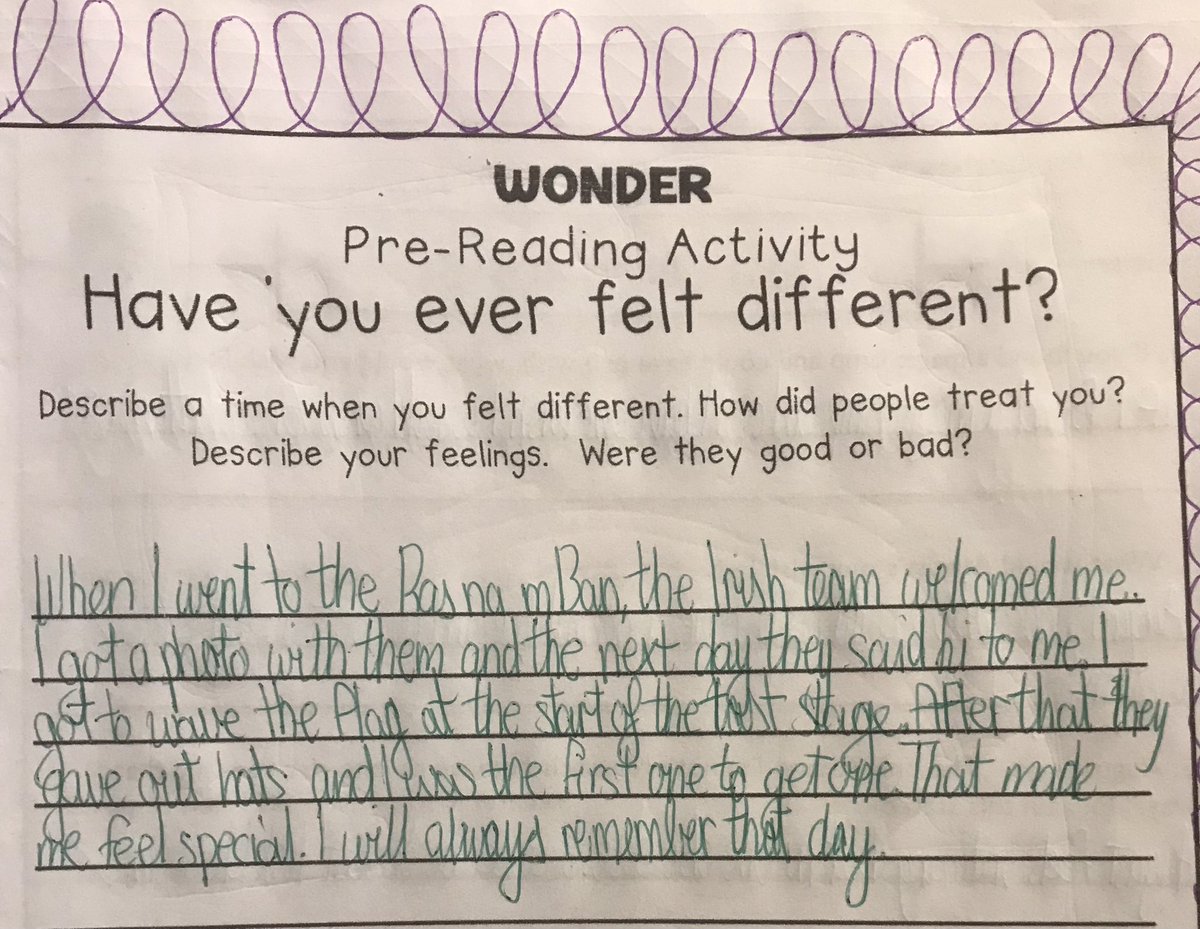 WONDER
Pre-Reading Activity
Have you ever felt different?
Describe a time when you felt different. How did people treat you?
Describe your feelings. Were they good or bad?
When I went to the Ras na mBan, the Irish team welcomed me.
I got a photo with them and the next day they said hi to me. I
got to wave the flag at the start of the first stage. After that they
gave out hats and I was the first one to get one. That made
me feel special. I will always remember that day.